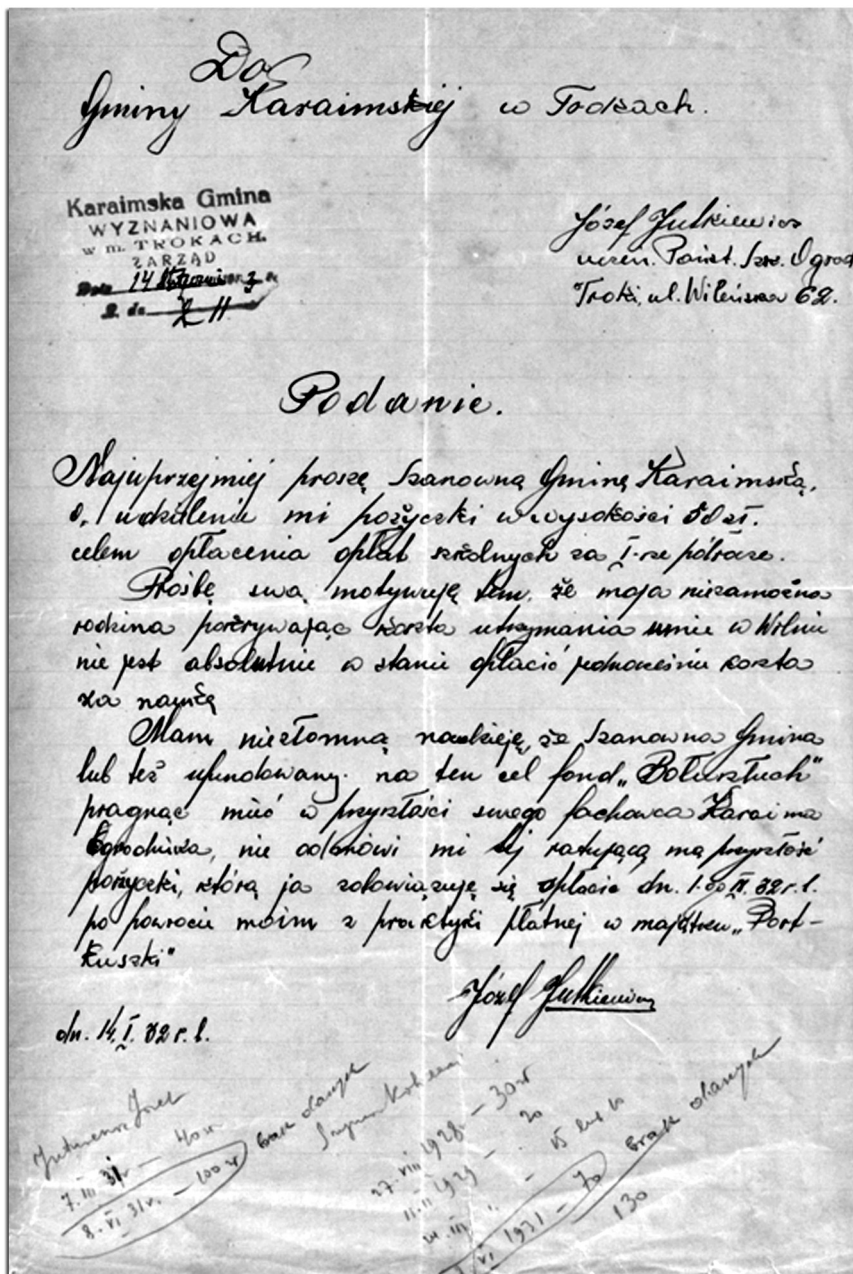 Do
Gminy Karaimskiej w Trokach.
Karaimska Gmina
WYZNANIOWA
w m. TROKACH.
ZARZĄD
Dnia 14 Stycznia
L. dz. 211
Józef Jutkiewicz
uczeń. Państ. Szk. Ogrod
Troki, ul. Wileńska 62.
Podanie.
Najuprzejmiej proszę Szanowną Gminę Karaimską,
o, udzielenie mi pożyczki w wysokości 50 zł.
celem opłacenia opłat szkolnych za I-sze półrocze.
Prośbę swą motywuję tem, że moja niezamożna
rodzina pokrywając koszta utrzymania mnie w Wilnie
nie jest absolutnie w stanie opłacić jednocześnie koszta
za naukę
Mam niezłomną nadzieję, że Szanowna Gmina
lub też ufundowany na ten cel fond „Bołuszłuch"
pragnąc mieć w przyszłości swego fachowca Karaima
Ogrodnika, nie odmówi mi tej ratującą mą przyszłość
pożyczki, którą ja zobowiązuję się opłacić dn. 1-go 32 r. b.
po powrocie moim z praktyki płatnej w majątku „Port-
kuszki"
Józef Jutkiewicz
dn. 14. I. 32 r. b.
Jutkiewicz Józef
7. III 31 r. — 40 zł
8. VI 31 r. — 100 zł brak danych
Szymon
27. VIII 1928 — 30 zł
11. II 1929 — 20
— 15
VI 1931 — 70 brak danych
130